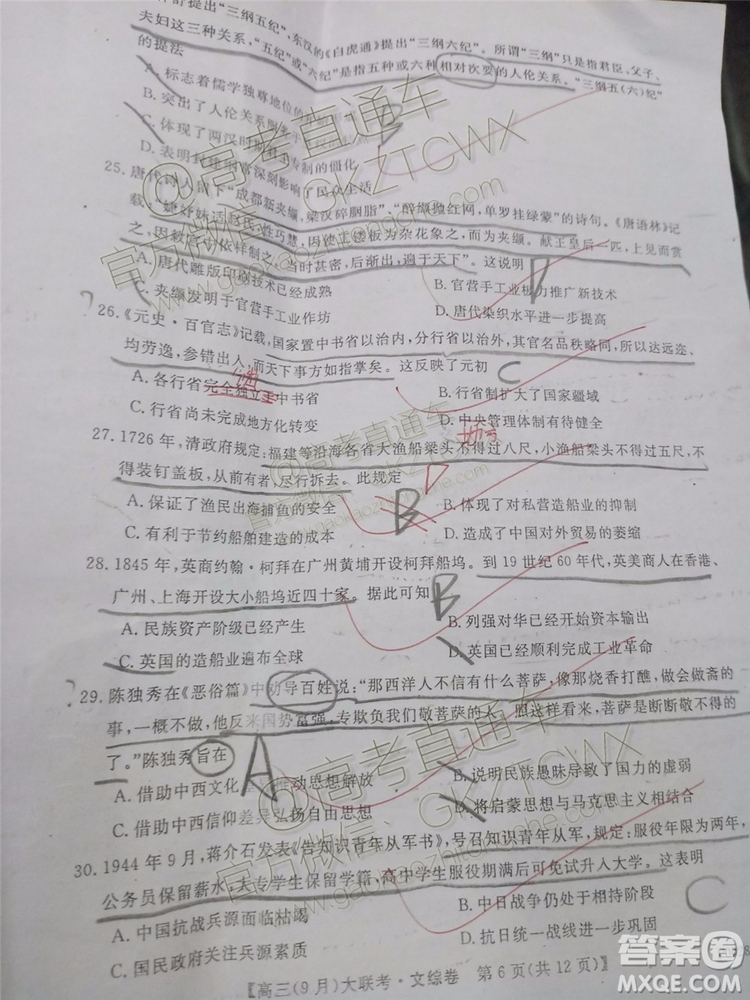 提出“三纲五纪”,东汉的《白虎通》提出“三纲六纪”。所谓“三纲”只是指君臣、父子、
夫妇这三种关系,“五纪”或“六纪”是指五种或六种相对次要的人伦关系。“三纲五(六)纪”
的提法
A. 标志着儒学独尊地位的
B. 突出了人伦关系
C. 体现了两汉时期
D. 表明 专制的僵化
25. 唐代诗人留下“成都新夹缬,梁汉碎胭脂”,“醉缬抛红网,单罗挂绿蒙”的诗句。《唐语林》记
载:“婕妤妹适赵氏,性巧慧,因使工镂板为杂花象之,而为夹缬。献王皇后一匹,上见而赏
之,因敕宫中依样制之,当时甚密,后渐出,遍于天下”。这说明
A. 唐代雕版印刷技术已经成熟
B. 官营手工业极力推广新技术
C. 夹缬发明于官营手工业作坊
D. 唐代染织水平进一步提高
26. 《元史·百官志》记载,国家置中书省以治内,分行省以治外,其官名品秩略同,所以达远迩、
均劳逸,参错出入,而天下事方如指掌矣。这反映了元初
A. 各行省完全独立于中书省
B. 行省制扩大了国家疆域
C. 行省尚未完成地方化转变
D. 中央管理体制有待健全
27. 1726 年,清政府规定:福建等沿海各省大渔船梁头不得过八尺,小渔船梁头不得过五尺,不
得装钉盖板,从前有者,尽行拆去。此规定
A. 保证了渔民出海捕鱼的安全
B. 体现了对私营造船业的抑制
C. 有利于节约船舶建造的成本
D. 造成了中国对外贸易的萎缩
28. 1845 年,英商约翰·柯拜在广州黄埔开设柯拜船坞。到 19 世纪 60 年代,英美商人在香港、
广州、上海开设大小船坞近四十家。据此可知
A. 民族资产阶级已经产生
B. 列强对华已经开始资本输出
C. 英国的造船业遍布全球
D. 英国已经顺利完成工业革命
29. 陈独秀在《恶俗篇》中劝导百姓说:“那西洋人不信有什么菩萨,像那烧香打醮,做会做斋的
事,一概不做,他反来国势富强,专欺负我们敬菩萨的人。照这样看来,菩萨是断断敬不得的
了。”陈独秀旨在
A. 借助中西文化 推动思想解放
B. 说明民族愚昧导致了国力的虚弱
C. 借助中西信仰差异弘扬自由主义
D. 将启蒙思想与马克思主义相结合
30. 1944 年 9 月,蒋介石发表《告知识青年从军书》,号召知识青年从军,规定:服役年限为两年,
公务员保留薪水,大专学生保留学籍,高中学生服役期满后可免试升入大学。这表明
A. 中国抗战兵源面临枯竭
B. 中日战争仍处于相持阶段
C. 国民政府关注兵源素质
D. 抗日统一战线进一步巩固
【高三(9 月)大联考·文综卷 第 6 页(共 12 页)】
B
D
C
B
B
A
C
@高考直通车
GKZTCWX
答案圈
MXQE.COM